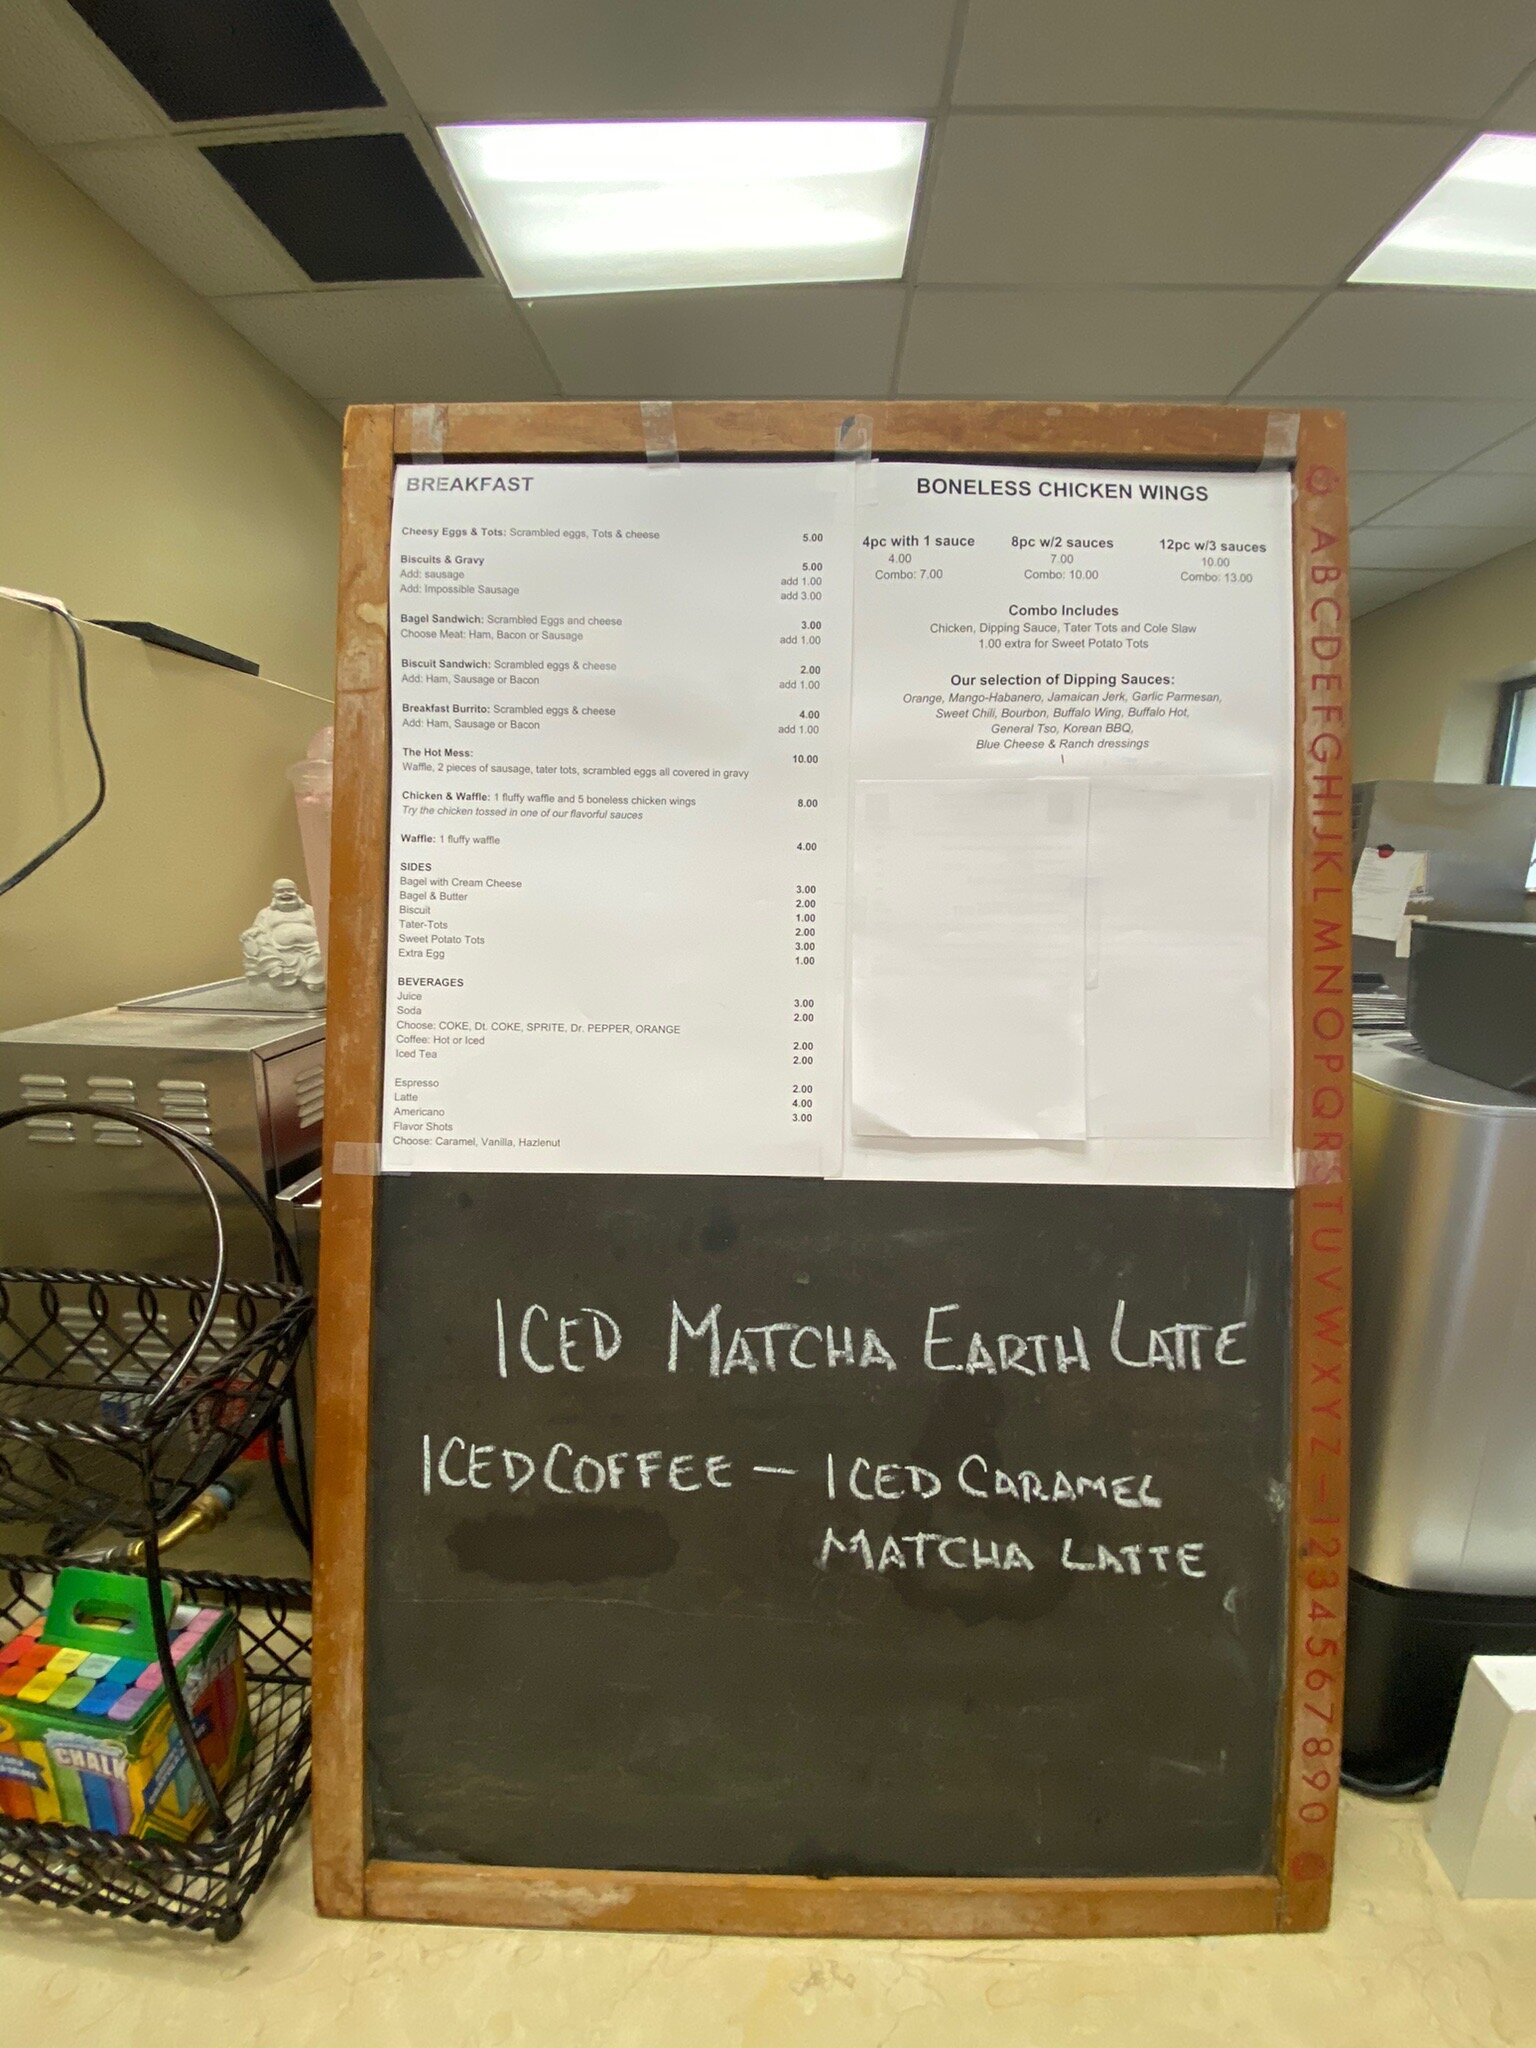 BREAKFAST
Cheesy Eggs & Tots: Scrambled eggs, Tots & cheese 5.00
Biscuits & Gravy 5.00
Add: sausage add 1.00
Add: Impossible Sausage add 3.00
Bagel Sandwich: Scrambled Eggs and cheese 3.00
Choose Meat: Ham, Bacon or Sausage add 1.00
Biscuit Sandwich: Scrambled eggs & cheese 2.00
Add: Ham, Sausage or Bacon add 1.00
Breakfast Burrito: Scrambled eggs & cheese 4.00
Add: Ham, Sausage or Bacon add 1.00
The Hot Mess: 10.00
Waffle, 2 pieces of sausage, tater tots, scrambled eggs all covered in gravy
Chicken & Waffle: 1 fluffy waffle and 5 boneless chicken wings 8.00
Try the chicken tossed in one of our flavorful sauces
Waffle: 1 fluffy waffle 4.00
SIDES
Bagel with Cream Cheese 3.00
Bagel & Butter 2.00
Biscuit 1.00
Tater-Tots 2.00
Sweet Potato Tots 3.00
Extra Egg 1.00
BEVERAGES
Juice 3.00
Soda 2.00
Choose: COKE, Dt. COKE, SPRITE, Dr. PEPPER, ORANGE
Coffee: Hot or Iced 2.00
Iced Tea 2.00
Espresso 2.00
Latte 4.00
Americano 3.00
Flavor Shots
Choose: Caramel, Vanilla, Hazlenut
BONELESS CHICKEN WINGS
4pc with 1 sauce 8pc w/2 sauces 12pc w/3 sauces
4.00 7.00 10.00
Combo: 7.00 Combo: 10.00 Combo: 13.00
Combo Includes
Chicken, Dipping Sauce, Tater Tots and Cole Slaw
1.00 extra for Sweet Potato Tots
Our selection of Dipping Sauces:
Orange, Mango-Habanero, Jamaican Jerk, Garlic Parmesan,
Sweet Chili, Bourbon, Buffalo Wing, Buffalo Hot,
General Tso, Korean BBQ,
Blue Cheese & Ranch dressings
\
ICED MATCHA EARTH LATTE
ICED COFFEE – ICED CARAMEL
MATCHA LATTE
ABCDEFGHIJKLMNOPQRSTUVWXYZ–1234567890
CHALK